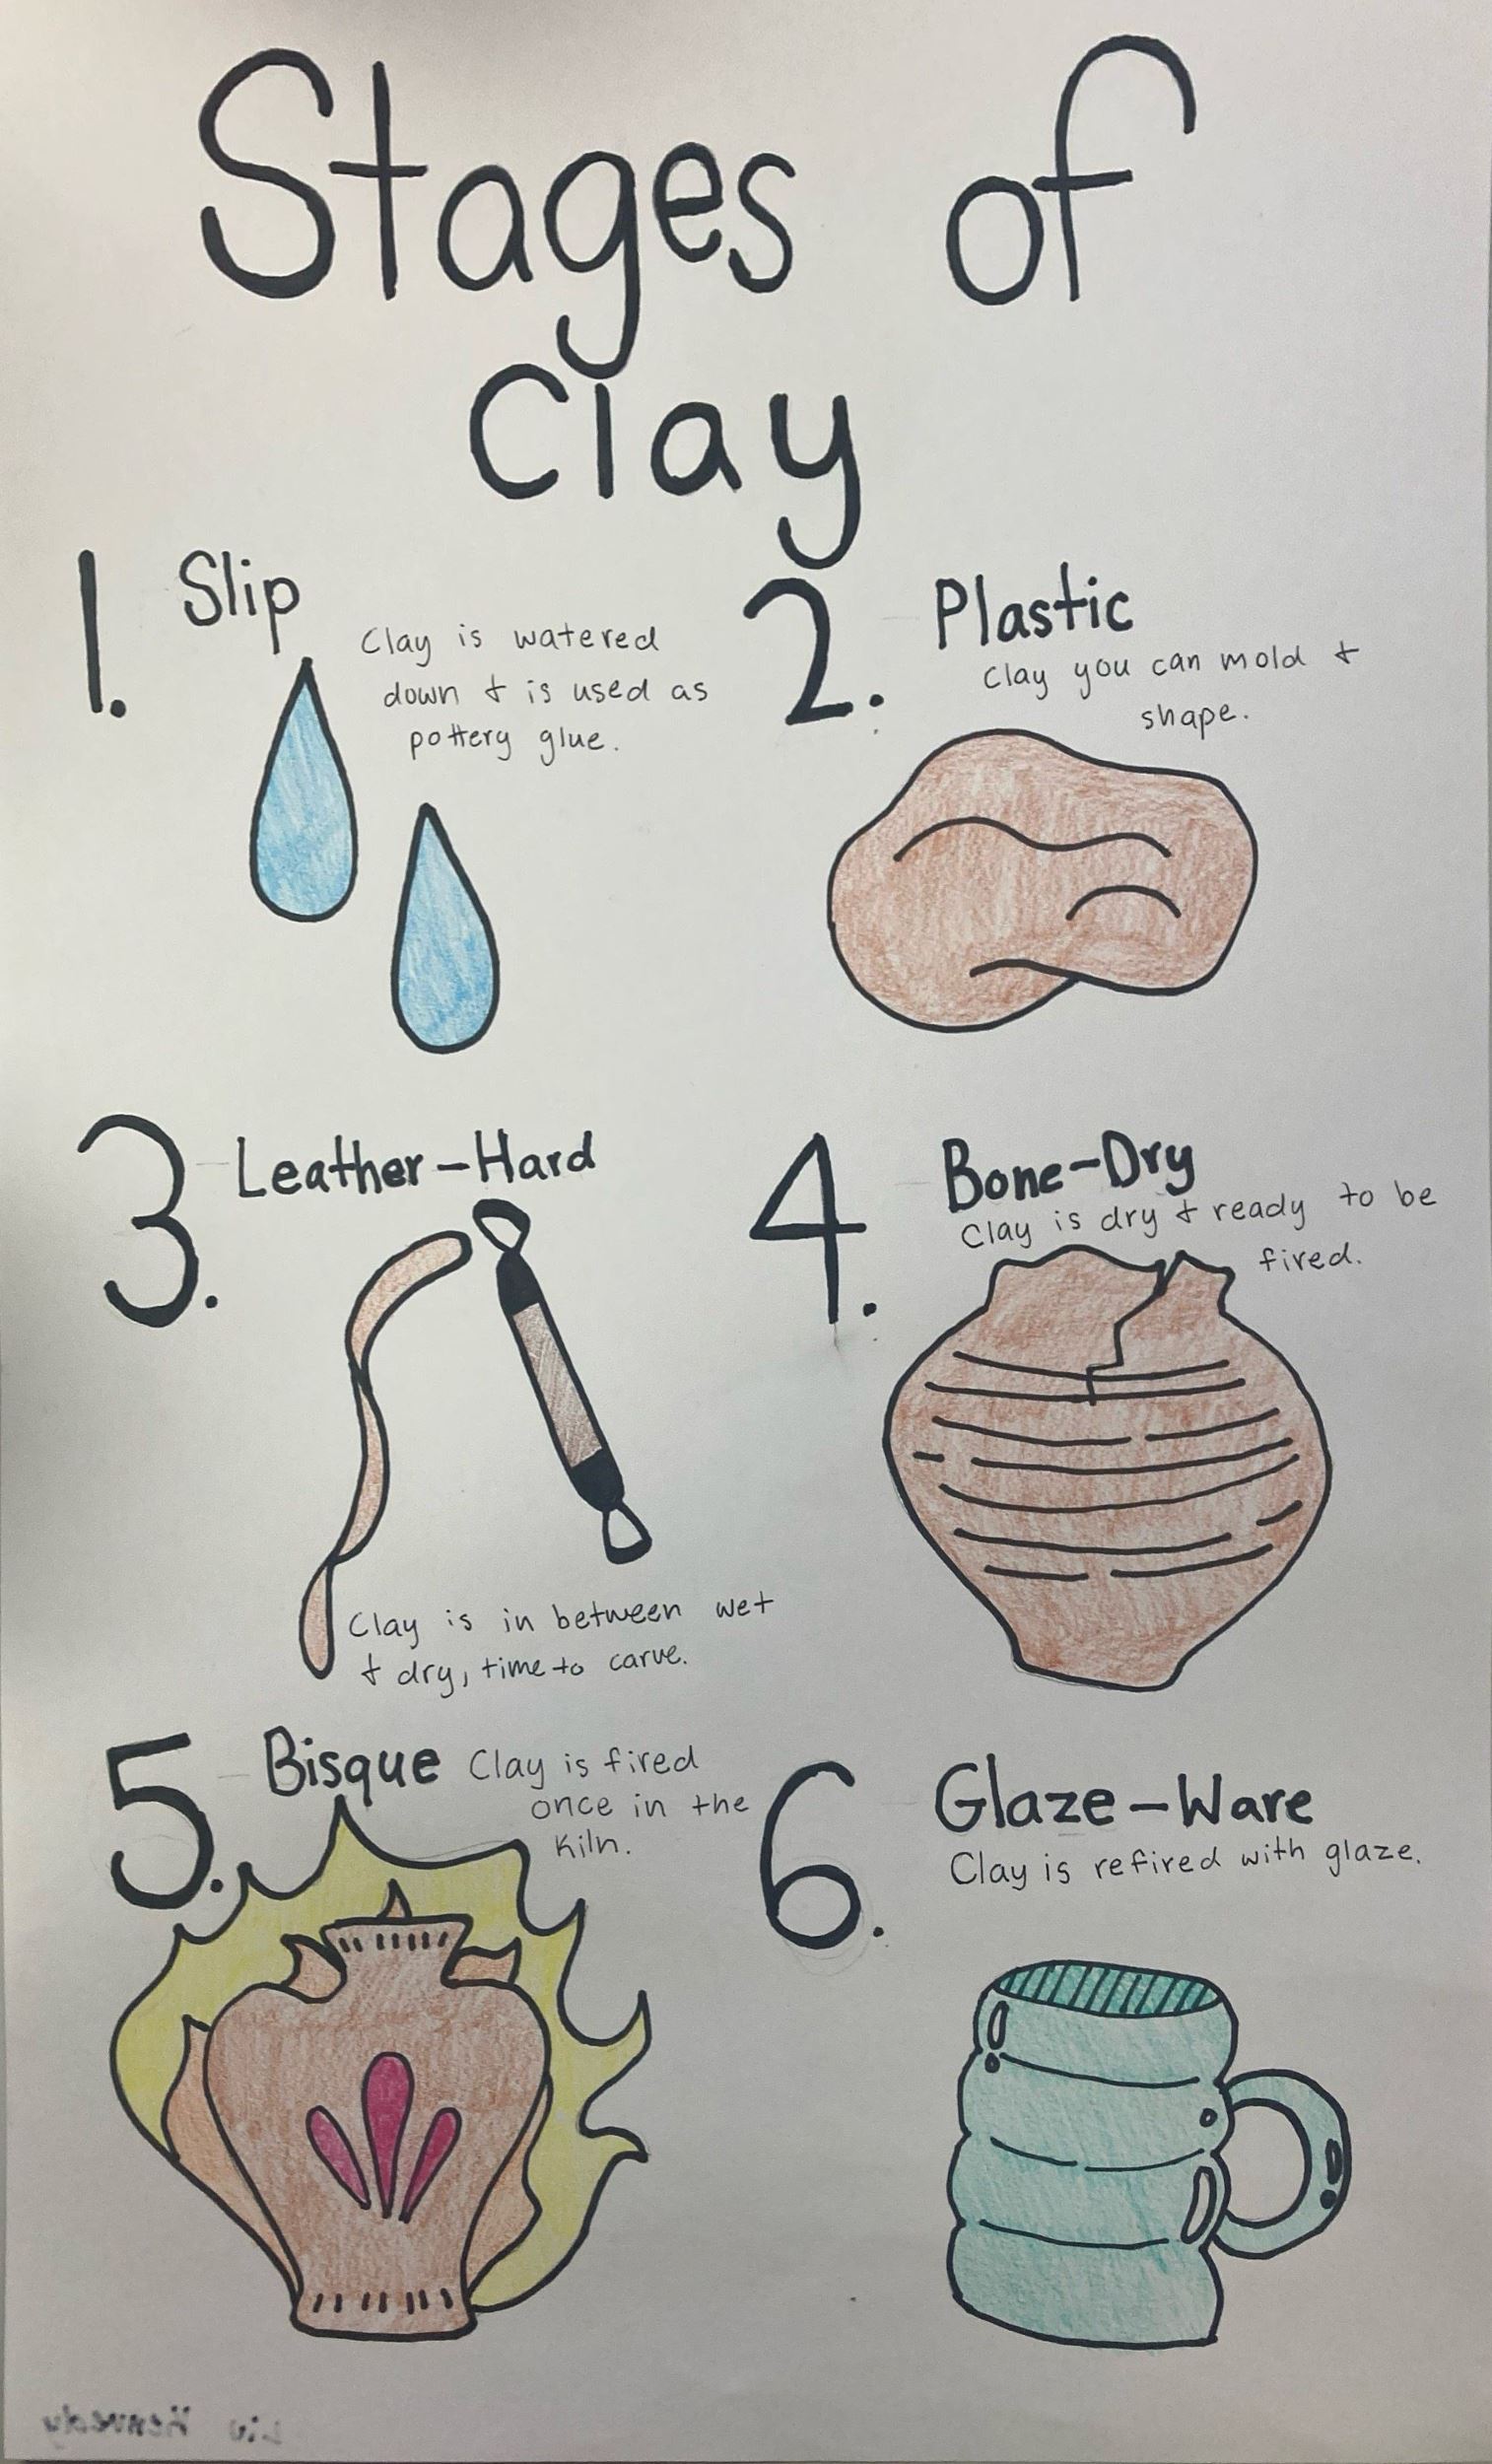 Stages of
Clay
1. Slip
Clay is watered
down & is used as
pottery glue.
2. Plastic
Clay you can mold &
shape.
3. Leather-Hard
Clay is in between wet
& dry, time to carve.
4. Bone-Dry
Clay is dry & ready to be
fired.
5. Bisque Clay is fired
once in the
kiln.
6. Glaze-Ware
Clay is refired with glaze.
Liv Kennedy